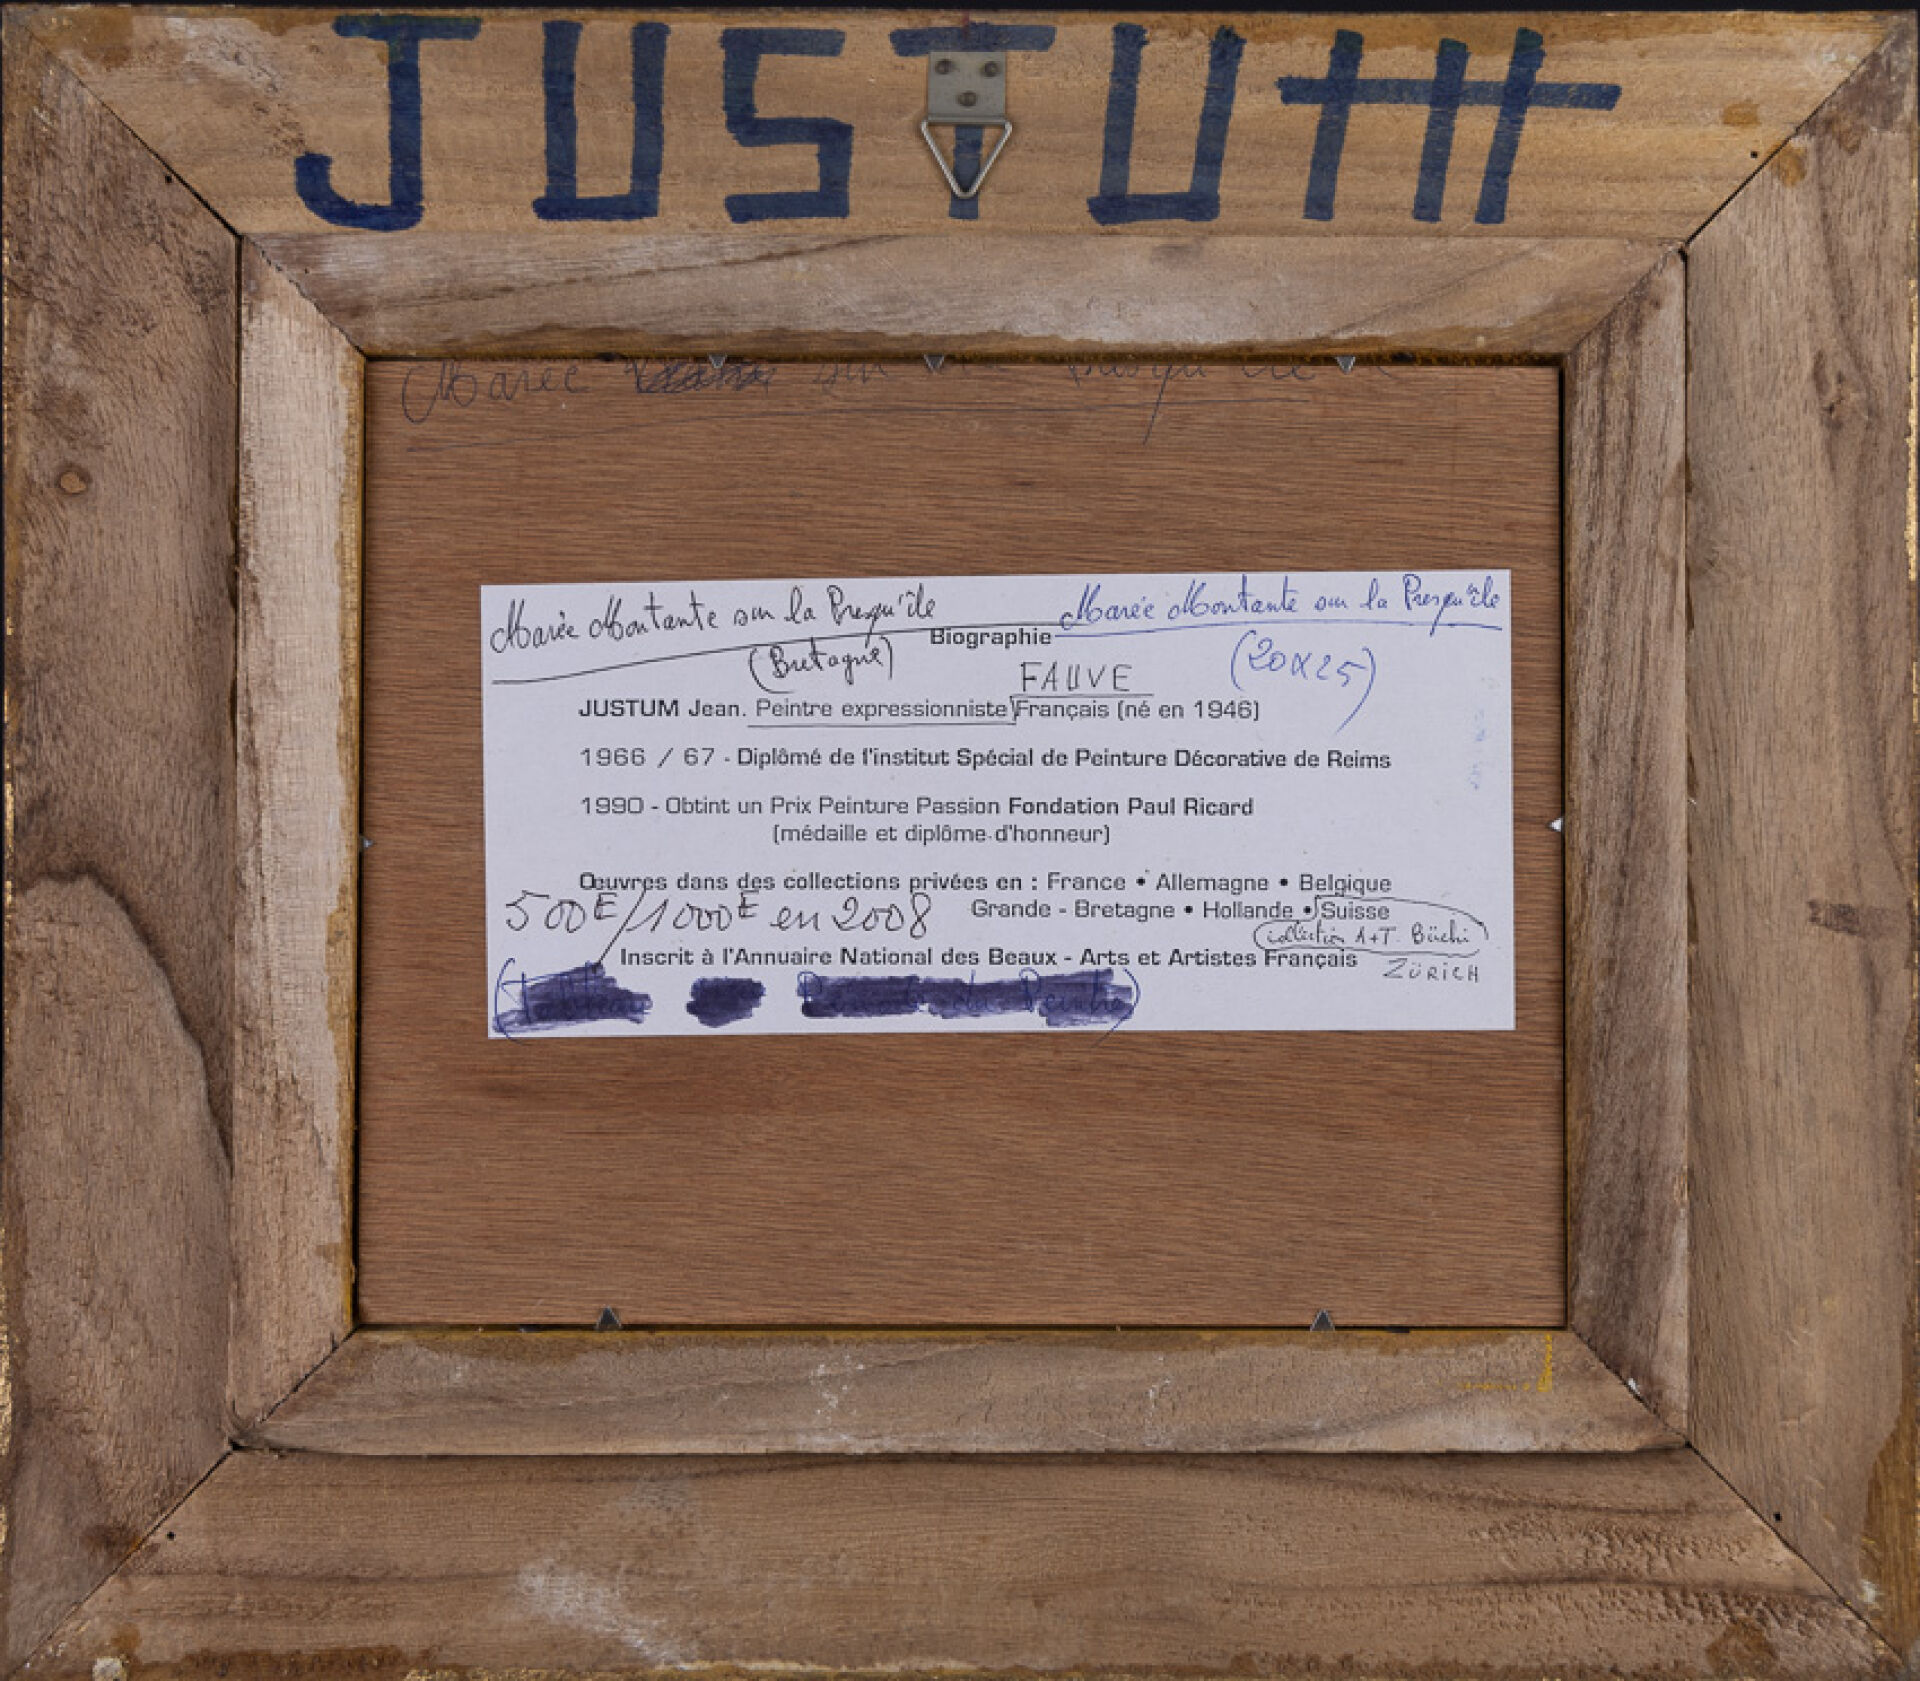 JUSTUM
Marée sur Presqu'île
Marée Montante sur la Presqu'île
Marée Montante sur la Presqu'île
Biographie
(Bretagne)
(20x25)
FAUVE
JUSTUM Jean. Peintre expressionniste Français (né en 1946)
1966 / 67 - Diplômé de l'institut Spécial de Peinture Décorative de Reims
1990 - Obtint un Prix Peinture Passion Fondation Paul Ricard
(médaille et diplôme d'honneur)
Œuvres dans des collections privées en : France • Allemagne • Belgique
500E/1000E en 2008
Grande - Bretagne • Hollande • Suisse
(collection A+T. Büchi)
Inscrit à l'Annuaire National des Beaux - Arts et Artistes Français
ZÜRICH